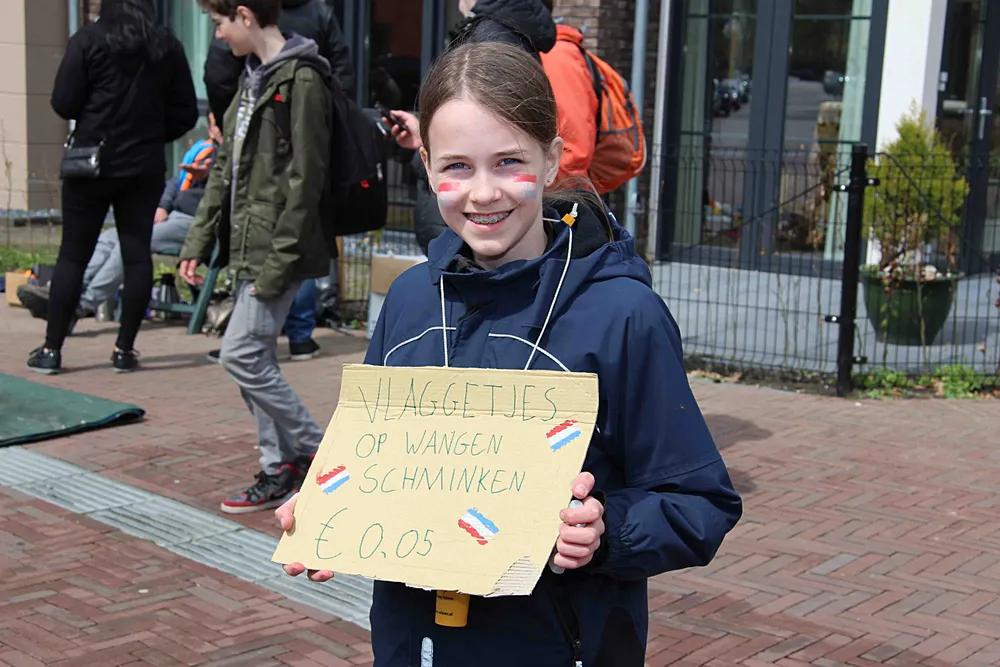 VLAGGETJES
OP WANGEN
SCHMINKEN
€ 0.05